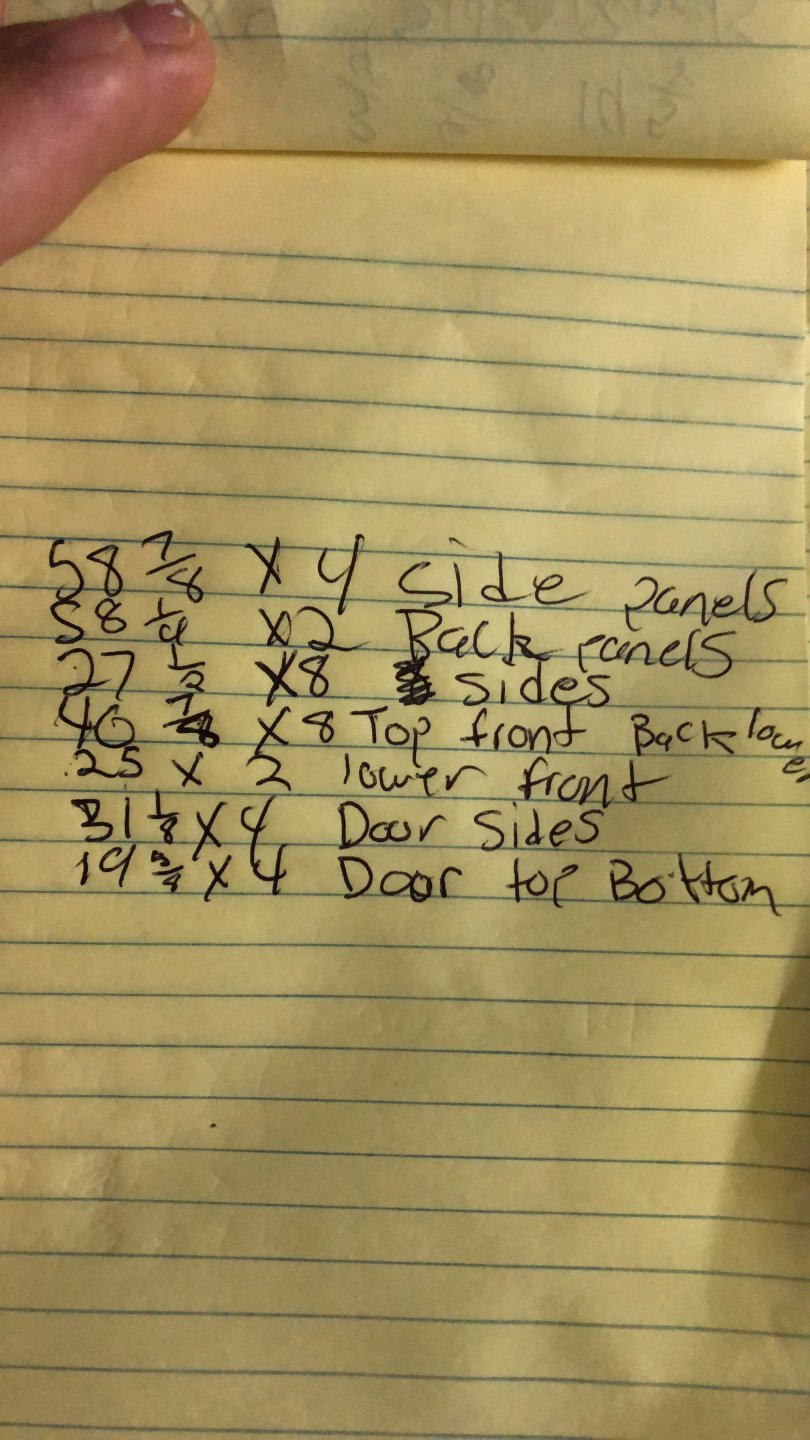 58 7/8 X 4 side panels
58 1/4 X2 Back panels
27 1/2 X8 sides
40 7/8 X8 Top front Back lower
25 X 2 lower front
31 1/8 X 4 Door sides
19 3/4 X 4 Door top Bottom